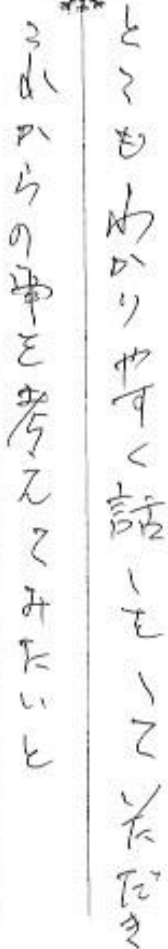 とてもわかりやすく話しをしていただき
これからの事を考えてみたいと